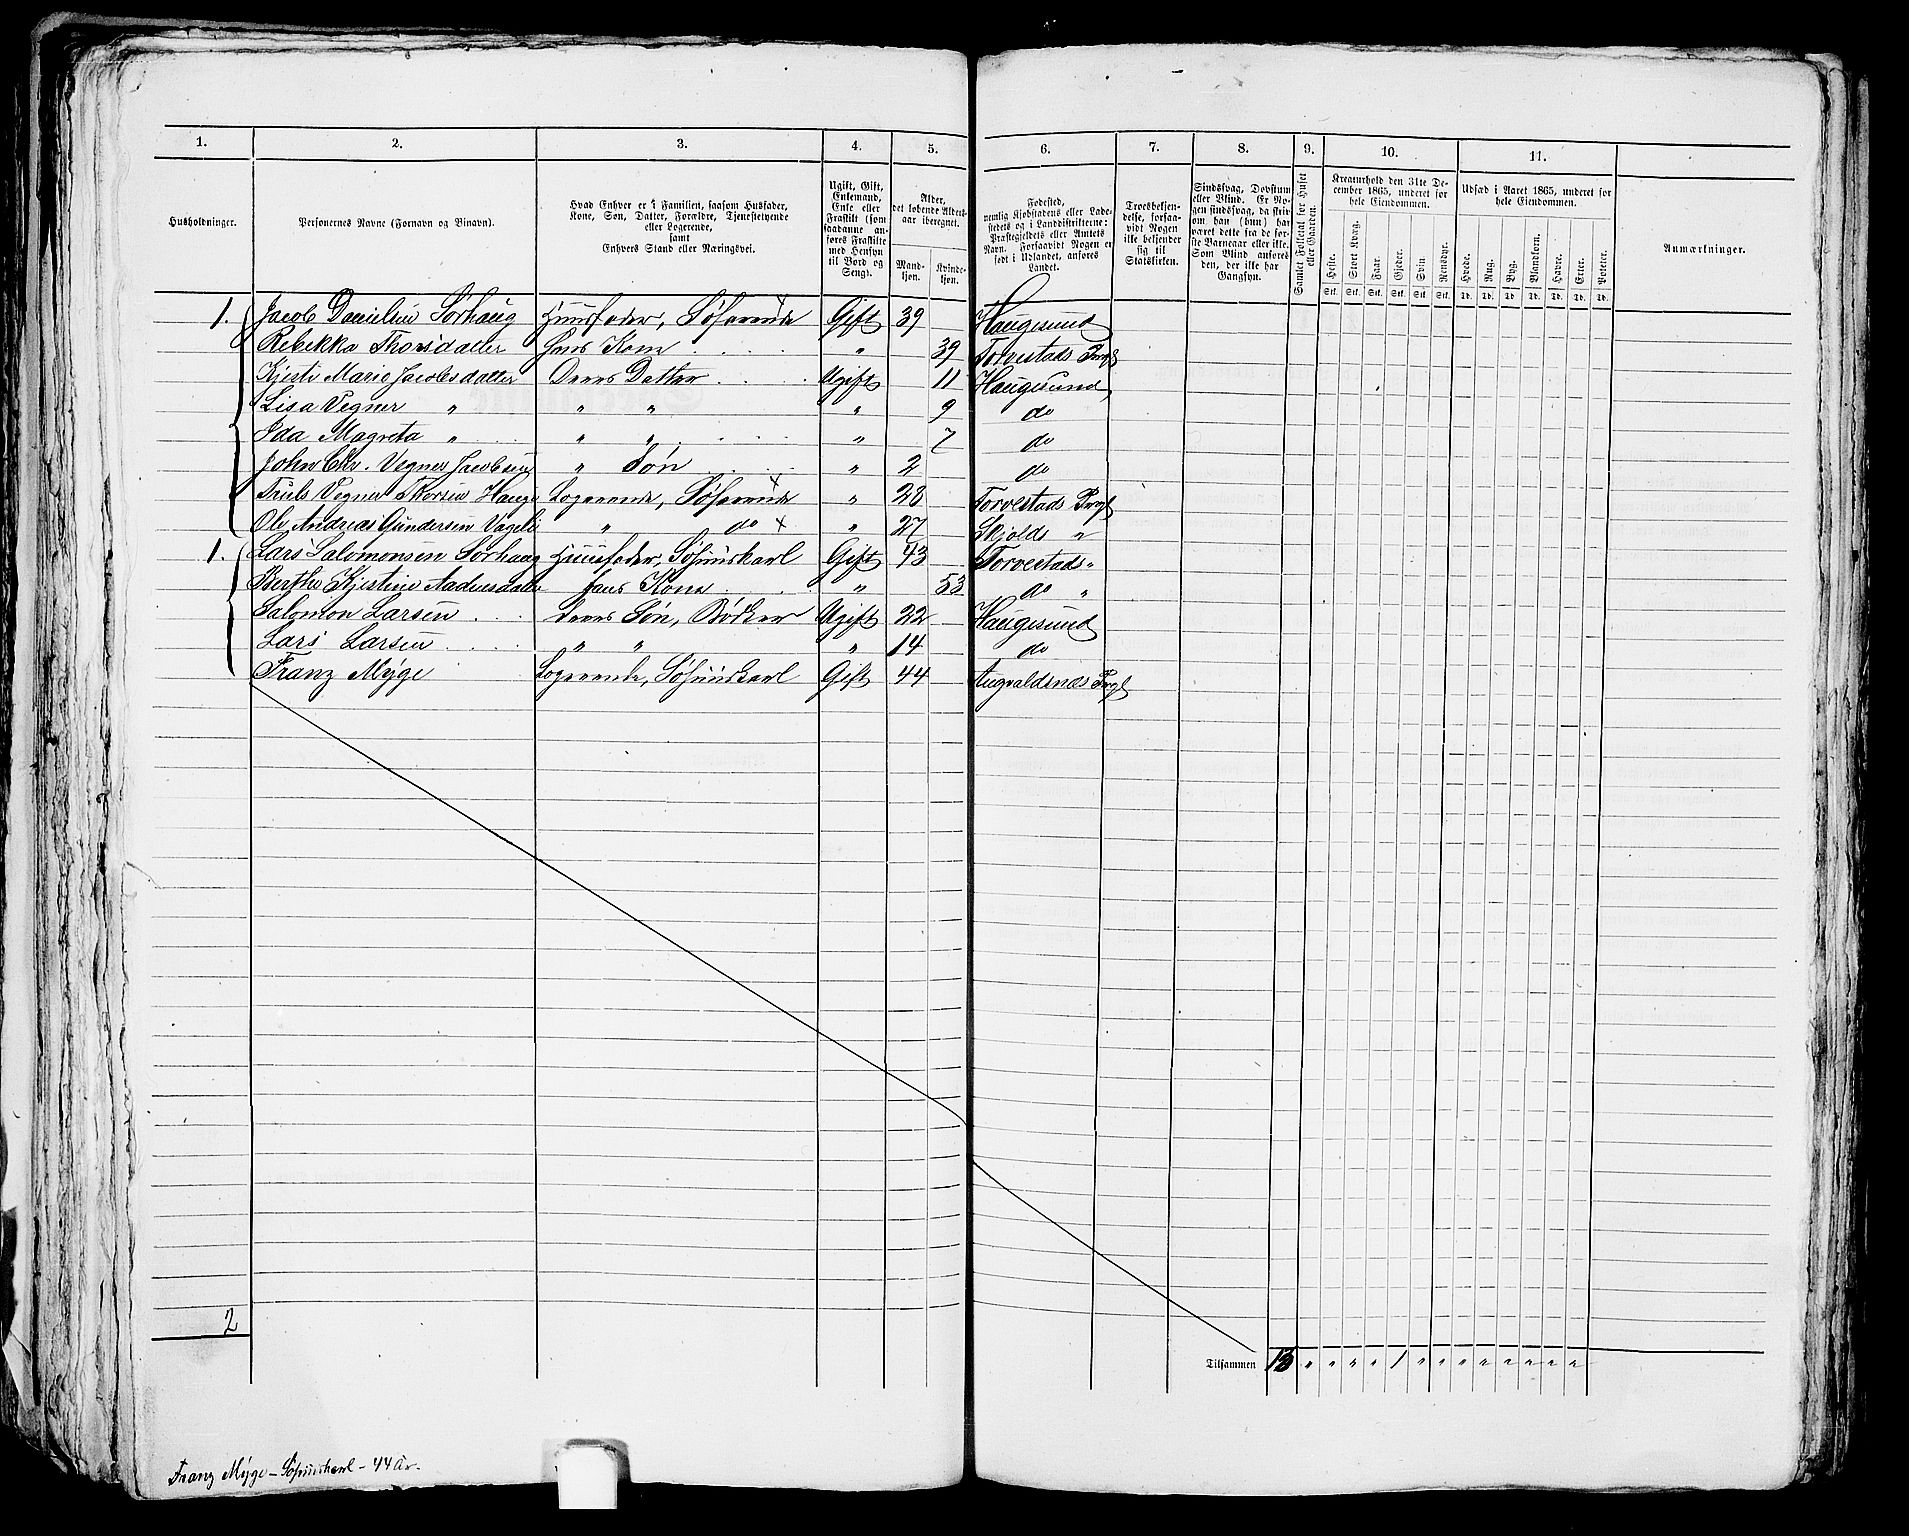 1. 2. 3. 4. 5. 6. 7. 8. 9. 10. 11.
Husholdninger.
Personernes Navne (Fornavn og Binavn).
Hvad Enhver er i Familien, saasom Husfader,
Kone, Søn, Datter, Forældre, Tjenestetyende
eller Logerende,
samt
Enhvers Stand eller Næringsvei.
Ugift, Gift,
Enkemand,
Enke eller
Fraskilt (som
saadanne an-
føres Fraskilte
med Hensyn
til Bord og
Seng).
Alder,
det løbende Alders-
aar iberegnet.
Mand-
kjøn.
Kvinde-
kjøn.
Fødested,
nemlig Kjøbstadens eller Lade-
stedets og i Landdistrikterne:
Præstegjeldets eller Amtets
Navn. Forsaavidt Nogen er
født i Udlandet, anføres
Landet.
Troesbekjen-
delse, forsaa-
vidt Nogen
ikke bekjender
sig til
Statskirken.
Sindssvag, Døvstum
eller Blind. Er No-
gen sindssvag, da skriv
om han (hun) har
været dette fra de før-
ste Barneaar eller ikke.
Som Blind anføres
den, der ikke har
Gangsyn.
Samlet Folketal for Huset
eller Gaarden.
Kreaturhold den 31te De-
cember 1865, underet for
hele Eiendommen.
Heste. Stort Kvæg. Faar. Gjeder. Svin. Rensdyr.
Stk. Stk. Stk. Stk. Stk. Stk.
Udsæd i Aaret 1865, underet for
hele Eiendommen.
Hvede. Rug. Byg. Blandkorn. Havre. Erter. Poteter.
Td. Td. Td. Td. Td. Td. Td.
Anmærkninger.
1. Jacob Danielsen Sørhaug Huusfader, Søfarende Gift 39 Haugesund
Rebekka Thorsdatter Hans Kone " 39 Torvestads Prgl
Kjersti Marie Jacobsdatter Deres Datter Ugift 11 Haugesund
Lisa Vegner " " " " 9 do
Ida Magreta " " " " 7 do
John Chr. Vegner Jacobsen " Søn " 2 do
Truls Vegner Thorsen Hauge Logerende, Søfarende " 28 Torvestads Prgl
Ole Andreas Gundersen Vageli " do x " 27 Skjolds "
1. Lars Salomonsen Sørhaug Huusfader, Søhuuskarl Gift 43 Torvestads "
Berthe Kjestine Aadnesdatter Hans Kone " 53 do "
Salomon Larsen Deres Søn, Bødker Ugift 22 Haugesund
Lars Larsen " " " 14 do
Franz Myge Logerende, Søhuuskarl Gift 44 Augvaldsnæs Prgl
2
Tilsammen 13 " " " " 1 " " " " " " " "
Franz Myge – Søhuuskarl – 44 år.